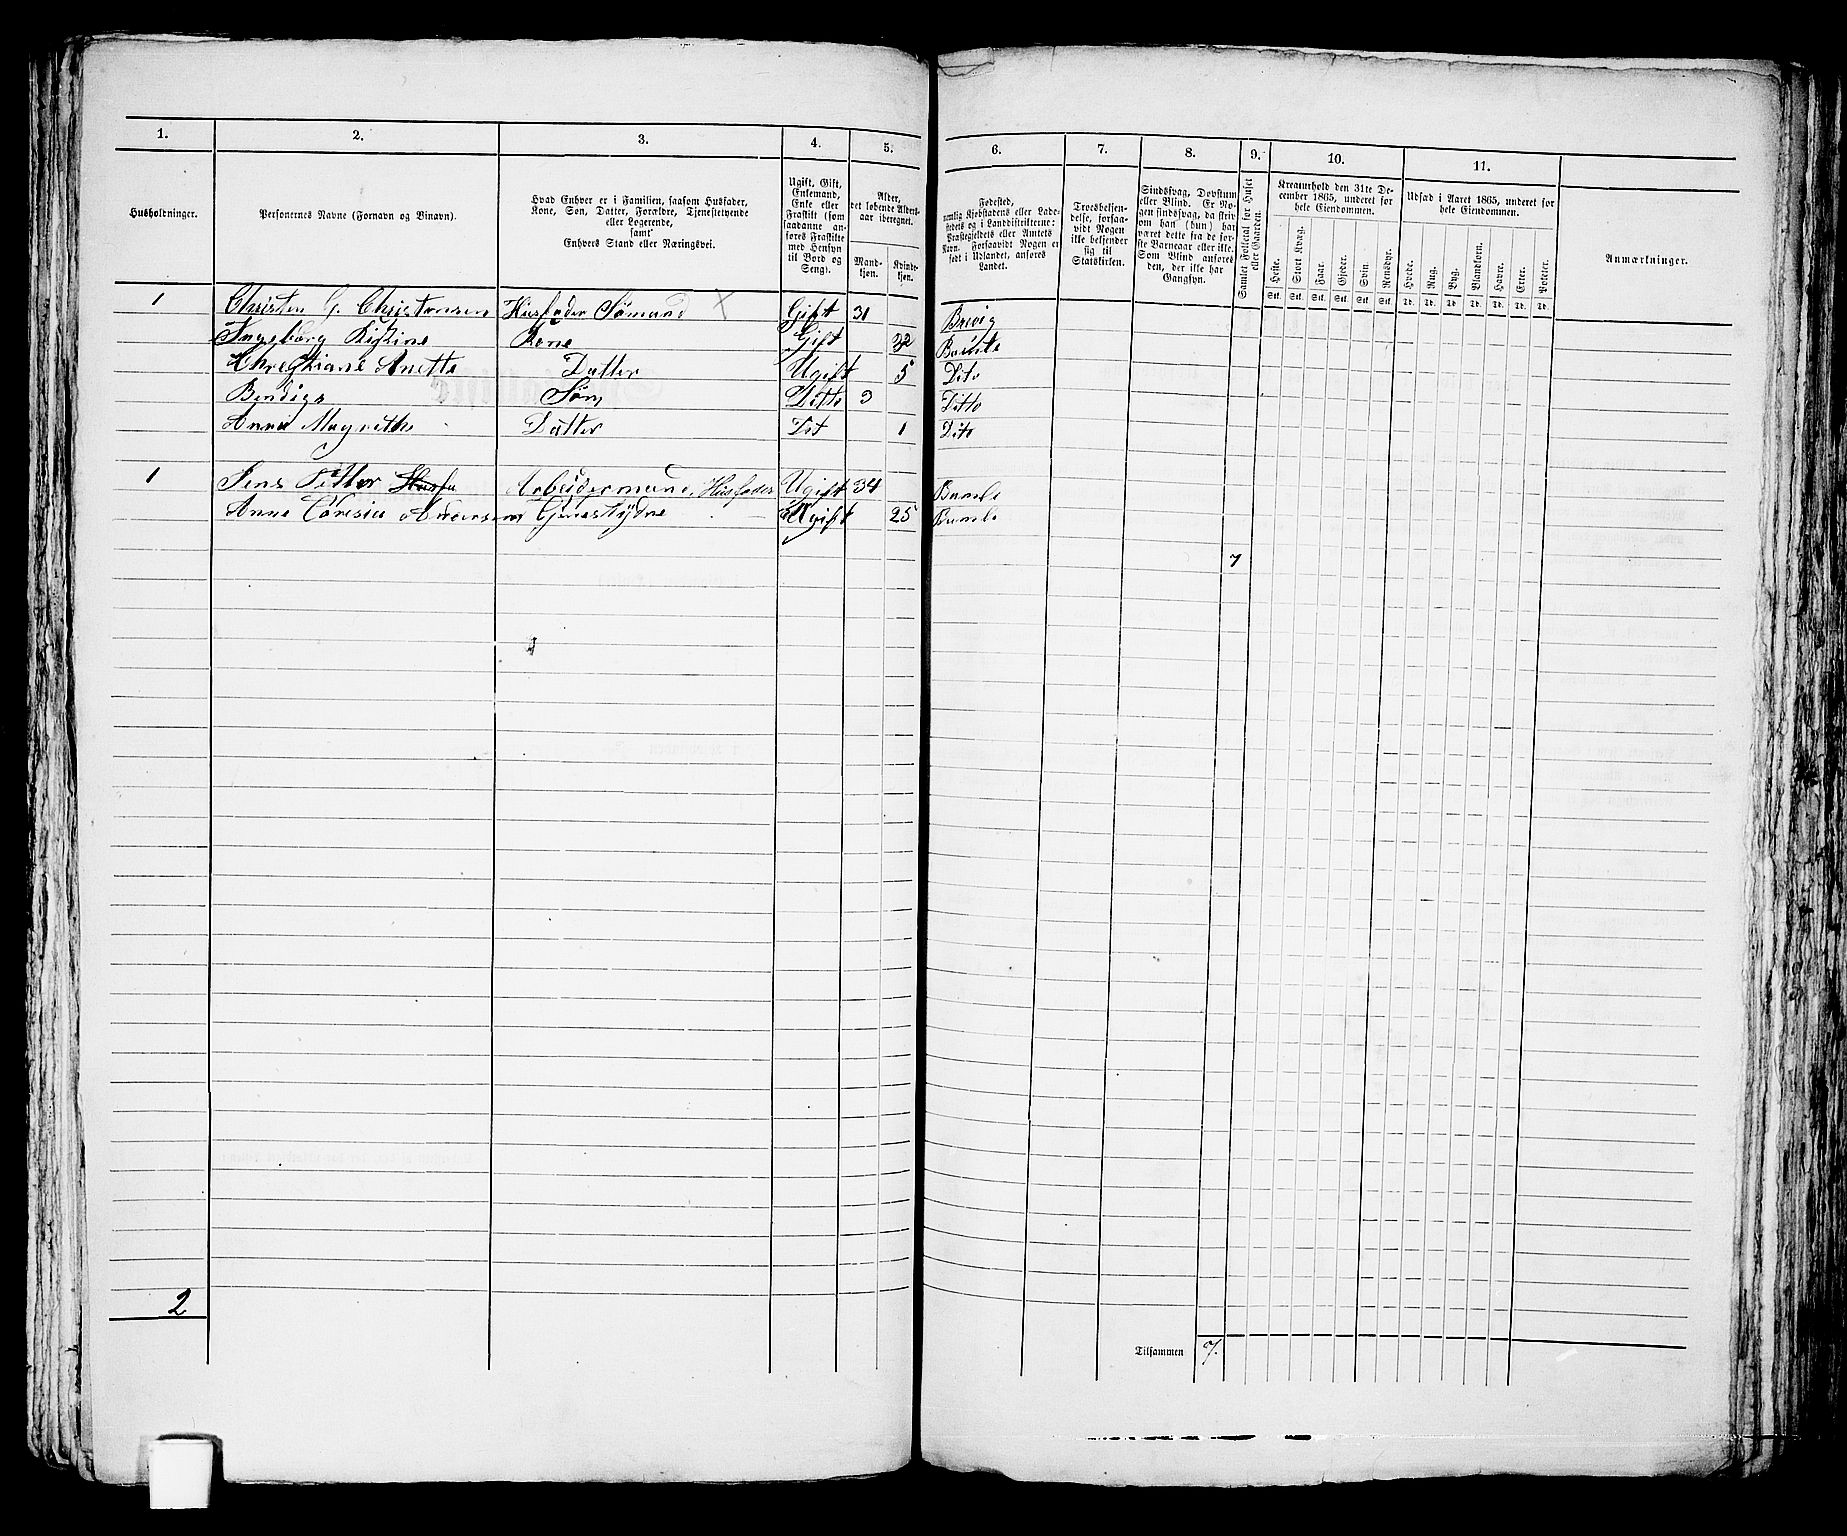 1. 2. 3. 4. 5. 6. 7. 8. 9. 10. 11.
Husholdninger.
Personernes Navne (Fornavn og Binavn).
Hvad Enhver er i Familien, saasom Husfader,
Kone, Søn, Datter, Forældre, Tjenestetyende
eller Logerende,
samt
Enhvers Stand eller Næringsvei.
Ugift, Gift,
Enkemand,
Enke eller
Fraskilt (som
saadanne an-
føres Fraskilte
med Hensyn
til Bord og
Seng).
Alder,
det løbende Alders-
aar iberegnet.
Mand-
kjøn.
Kvinde-
kjøn.
Fødested,
nemlig Kjøbstadens eller Lade-
stedets og i Landdistrikterne:
Præstegjeldets eller Amtets
Navn. Forsaavidt Nogen er
født i Udlandet, anføres
Landet.
Troesbekjen-
delse, forsaa-
vidt Nogen
ikke bekjender
sig til
Statskirken.
Sindssvag, Døvstum
eller Blind. Er No-
gen sindssvag, da skriv
om han (hun) har
været dette fra de før-
ste Barneaar eller ikke.
Som Blind anføres
den, der ikke har
Gangsyn.
Samlet Folketal for Huset
eller Gaarden.
Kreaturhold den 31te De-
cember 1865, underet for
hele Eiendommen.
Heste. Stort Kvæg. Faar. Gjeder. Svin. Rensdyr.
Stk. Stk. Stk. Stk. Stk. Stk.
Udsæd i Aaret 1865, underet for
hele Eiendommen.
Hvede. Rug. Byg. Blandkorn. Havre. Erter. Poteter.
Td. Td. Td. Td. Td. Td. Td.
Anmærkninger.
1 Christen G. Christensen Husfader Sømand X Gift 31 Brevig
Ingeborg Kirstine Kone Gift 32 Bamle
Christiane Anette Datter Ugift 5 Dito
Søn Ditto 3 Ditto
Anne Magrethe Datter Dit 1 Dito
1 Jens Petter Arbeidermand, Husfader Ugift 34 Bamle
Anne Ugift 25 Bamle
7
2
Tilsammen 7.